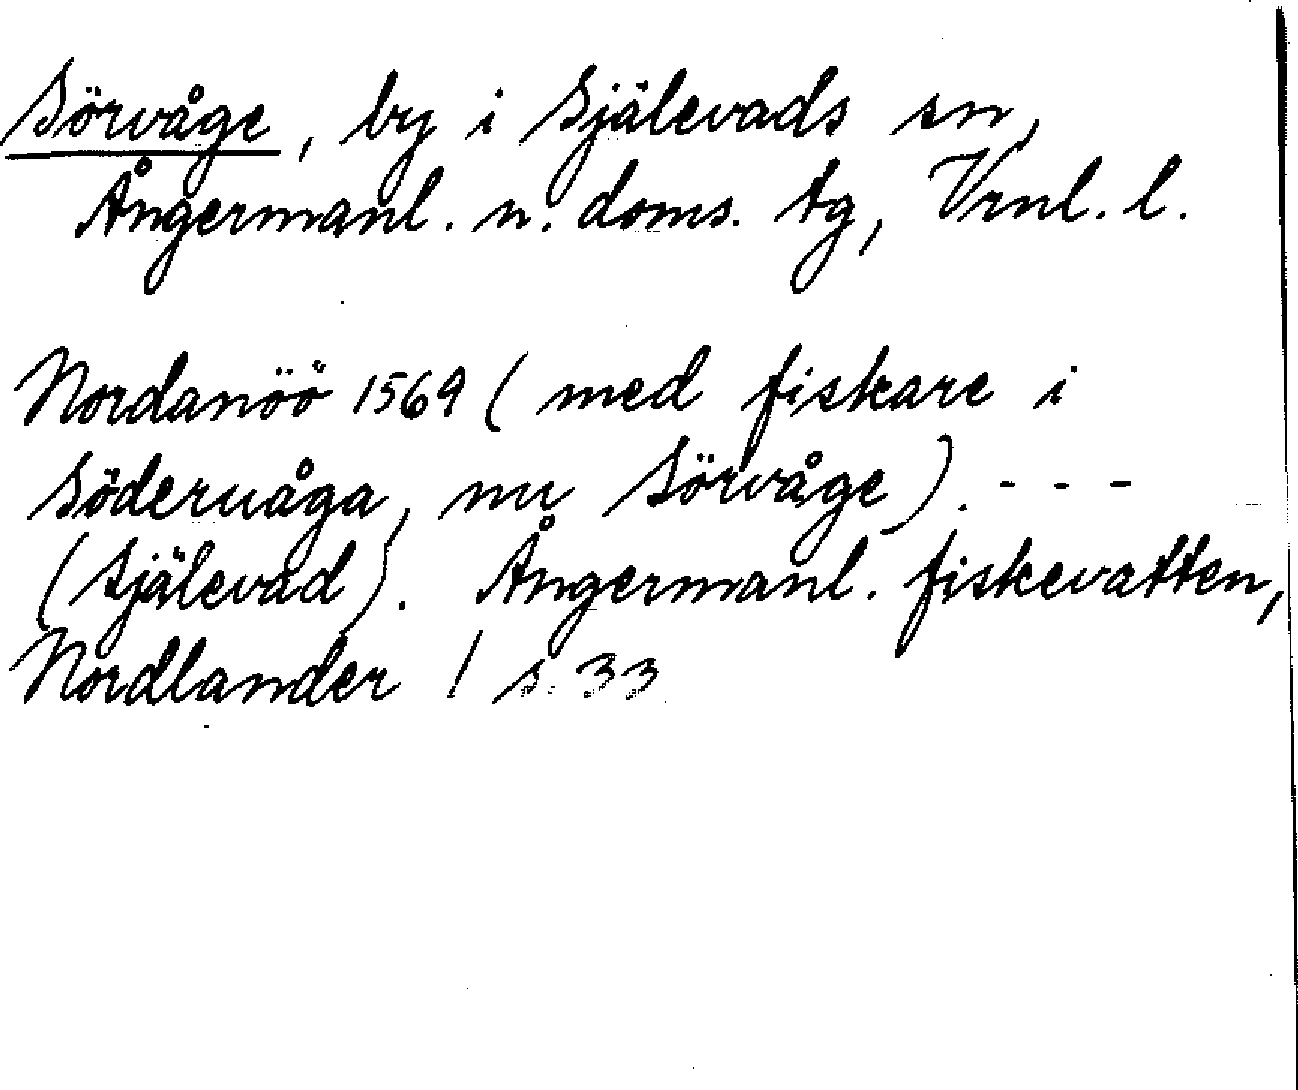 Sörvåge, by i Själevads sn,
Ångermanl. n. doms. tg, Vrnl. l.
Nordanöö 1569 (med fiskare i
Söderuåga, nu Sörvåge). - - -
(Själevad). Ångermanl. fiskevatten,
Nordlander / s. 33